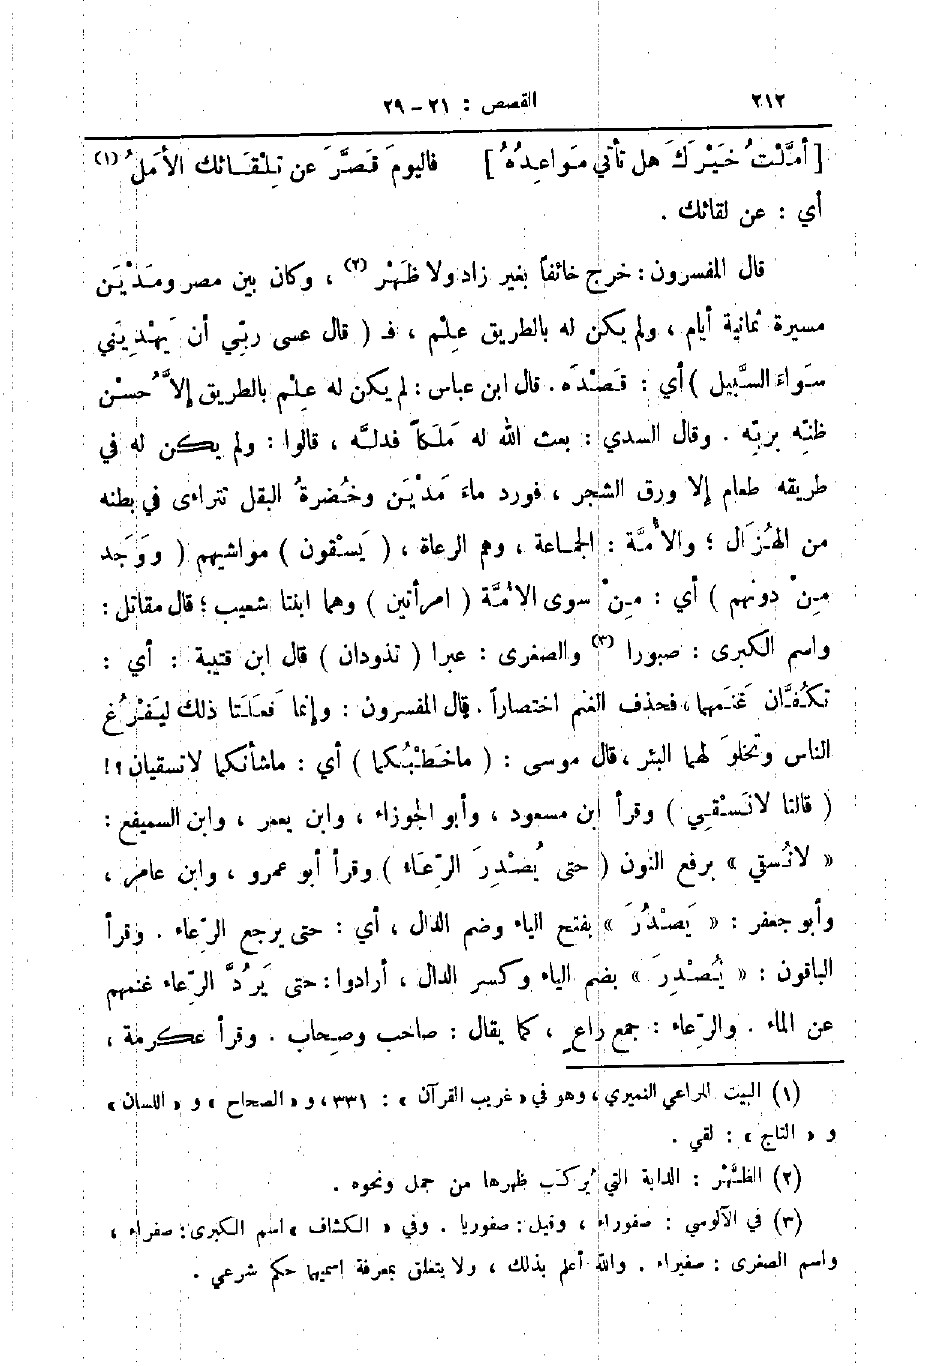 ٢١٢ القصص : ٢١ - ٢٩
[ أمَّلْتُ خَيْرَكَ هل تأتي مَواعِدُهُ ] فاليومَ قَصَّرَ عن تِلْقَائك الأمَلُ (١)
أي : عن لقائك .
قال المفسرون : خرج خائفاً بغير زاد ولا ظَهْر (٢) ، وكان بين مصر ومَدْيَن
مسيرة ثمانية أيام ، ولم يكن له بالطريق عِلْم ، فـ ( قال عسى ربِّي أن يَهْدِيَني
سَواءَ السَّبيل ) أي : قَصْدَه . قال ابن عباس : لم يكن له عِلْم بالطريق إلاَّ حُسْن
ظنِّه بربِّه . وقال السدي : بعث الله له مَلَكاً فدلَّه ، قالوا : ولم يكن له في
طريقه طعام إلا ورق الشجر ، فورد ماءَ مَدْيَن وخُضرةُ البقل تتراءى في بطنه
من الهُزَال ؛ والأُمَّة : الجماعة ، وهم الرعاة ، ( يَسْقون ) مواشيهم ( ووَجَد
مِنْ دونهم ) أي : مِنْ سوى الأُمَّة ( امرأتين ) وهما ابنتا شعيب ؛ قال مقاتل :
واسم الكبرى : صبورا (٣) والصغرى : عبرا ( تذودان ) قال ابن قتيبة : أي :
تكُفَّان غَنَمهما، فحذف الغنم اختصاراً . قال المفسرون : وإنما فَعَلَتا ذلك ليَفْرُغ
الناس وتخلوَ لهما البئر ، قال موسى : ( ماخَطْبُكما ) أي : ماشأنكما لاتسقيان ؟!
( قالتا لانَسْقِي ) وقرأ ابن مسعود ، وأبو الجوزاء ، وابن يعمر ، وابن السميفع :
« لانُسقي » برفع النون ( حتى يُصْدِرَ الرِّعَاء ) وقرأ أبو عمرو ، وابن عامر ،
وأبو جعفر : « يَصْدُرَ » بفتح الياء وضم الدال ، أي : حتى يرجع الرِّعاء . وقرأ
الباقون : « يُصْدِرَ » بضم الياء وكسر الدال ، أرادوا : حتى يَرُدَّ الرِّعاء غنمهم
عن الماء . والرِّعاء : جمع راعٍ ، كما يقال : صاحب وصِحاب . وقرأ عكرمة ،
(١) البيت للراعي النميري ، وهو في « غريب القرآن » : ٣٣١ ، و « الصحاح » و « اللسان »
و « التاج » : لقي .
(٢) الظَّهْر : الدابة التي يُركَب ظهرها من جمل ونحوه .
(٣) في الآلوسي : صفوراء ، وقيل : صفوريا . وفي « الكشاف » اسم الكبرى : صفراء ،
واسم الصغرى : صفيراء . والله أعلم بذلك ، ولا يتعلق بمعرفة اسميهما حكم شرعي .